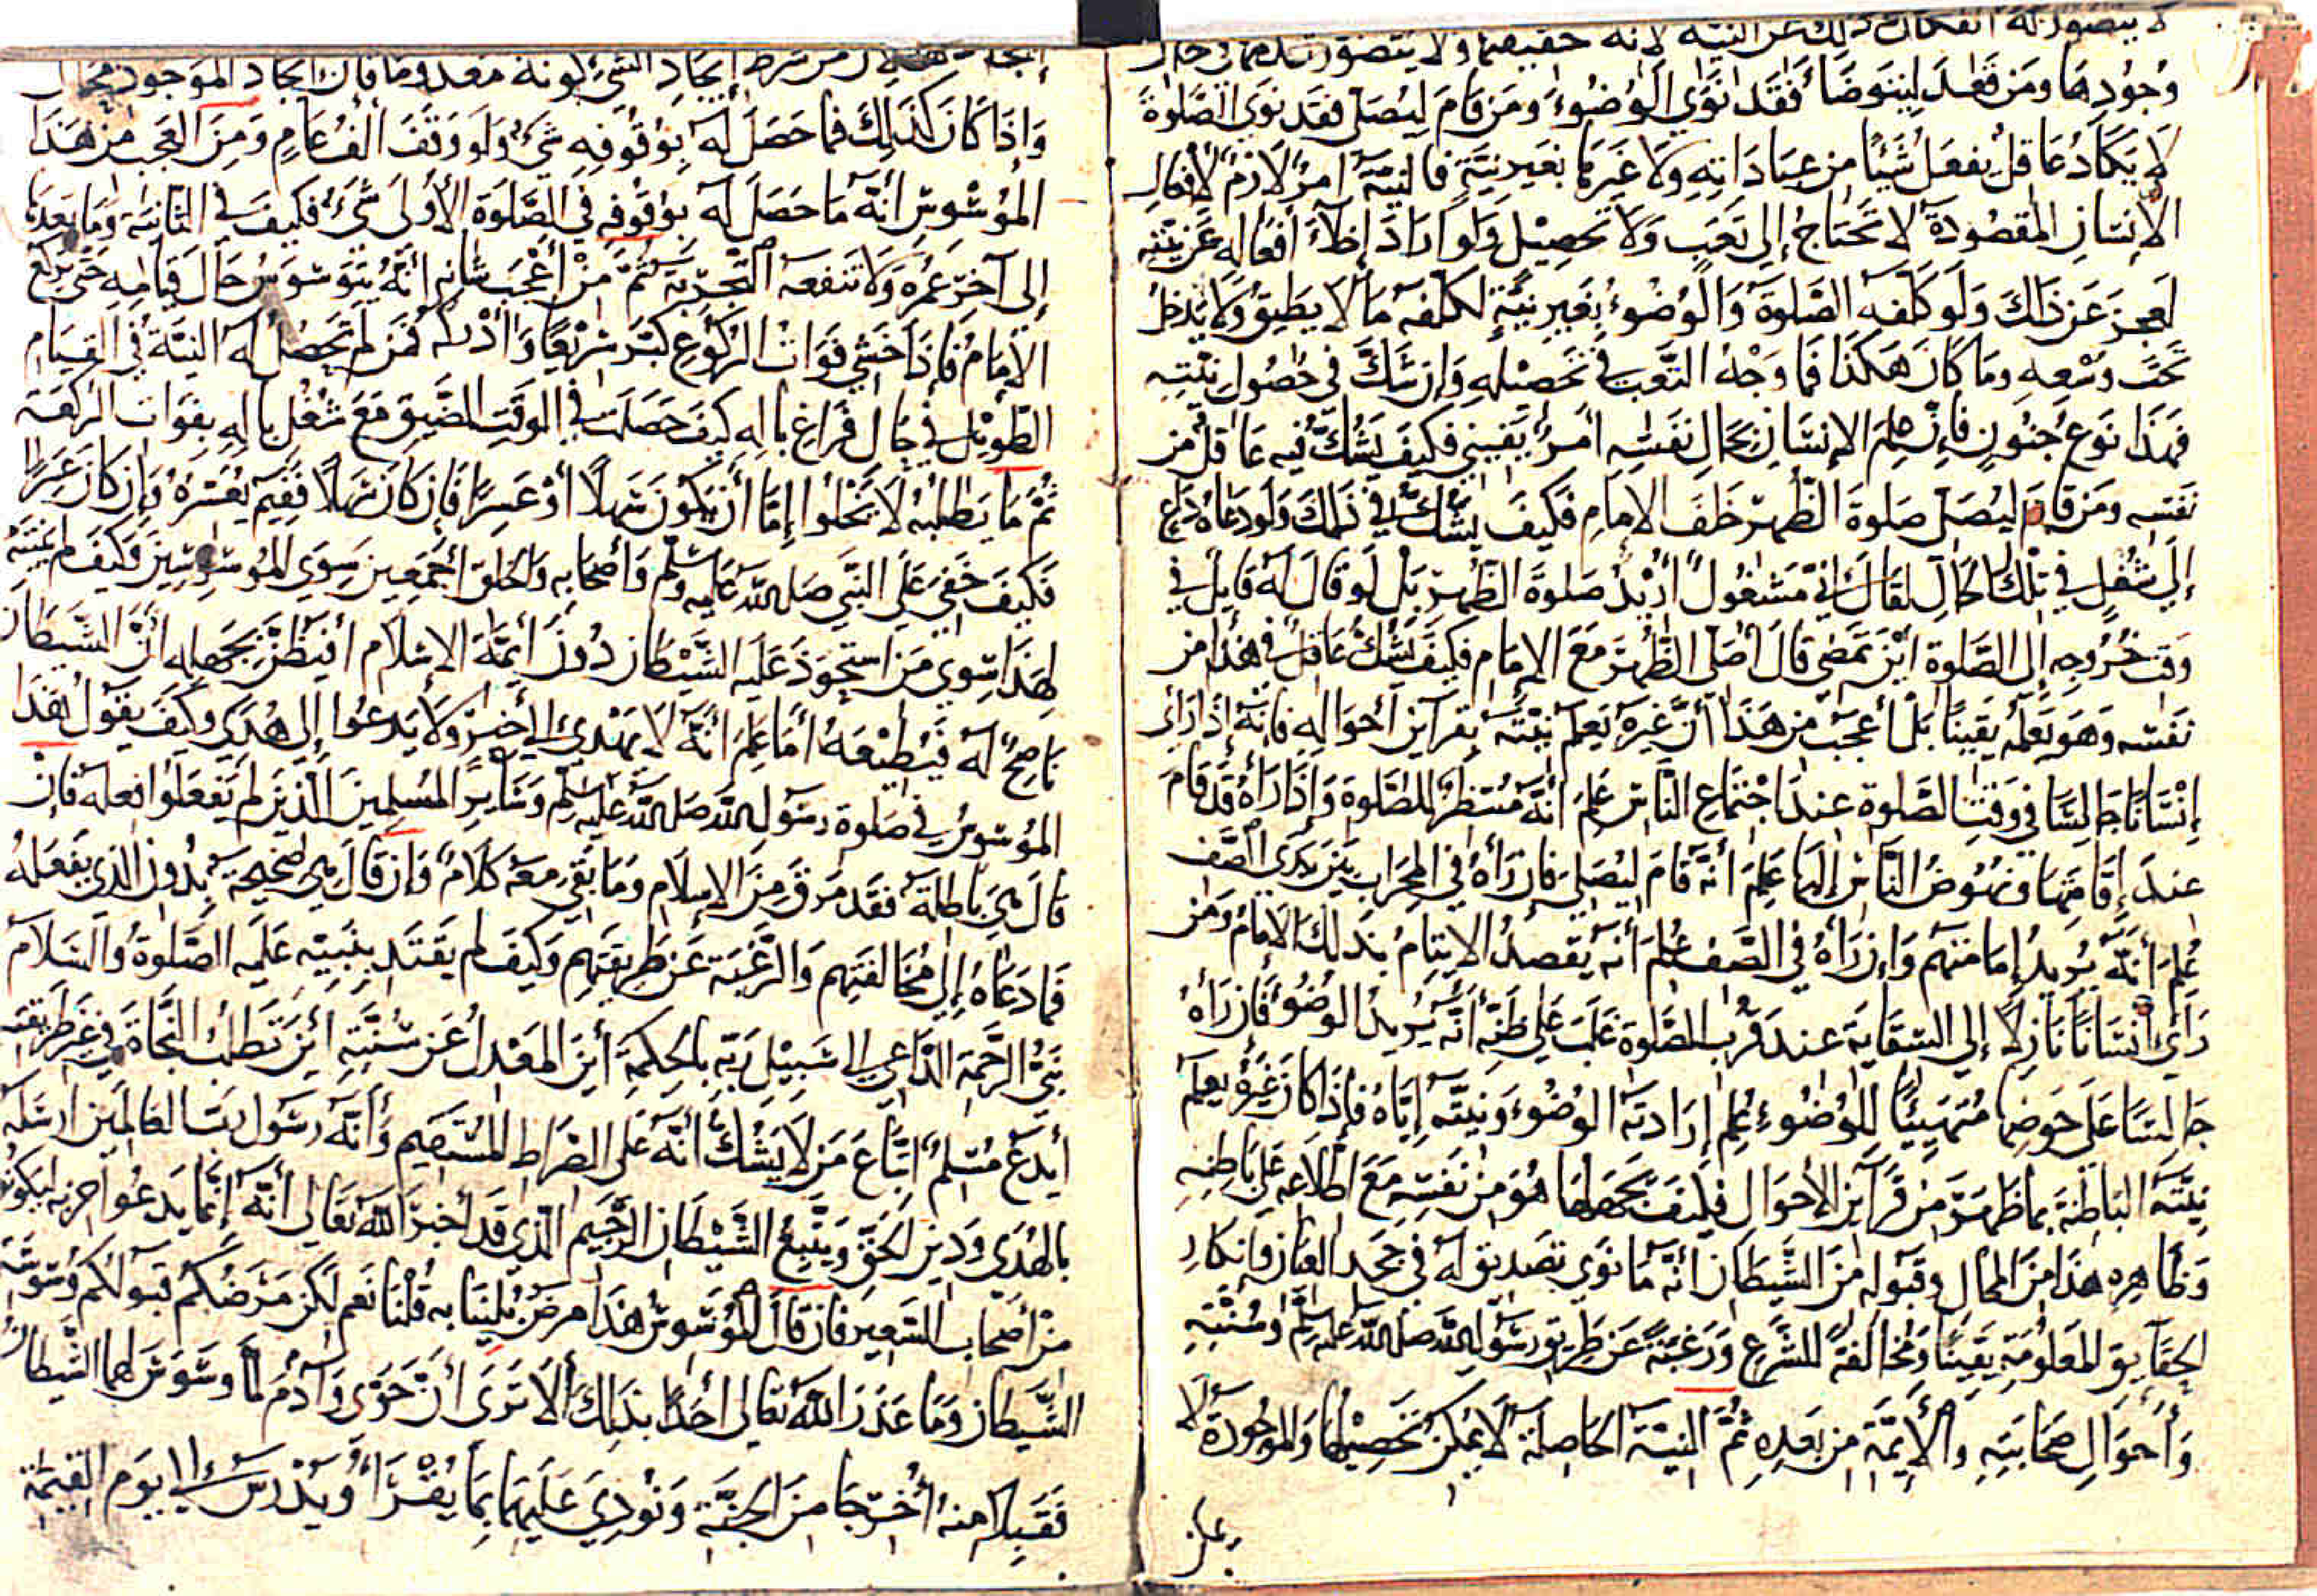 لا يتصور له انفكاك ذلك عن النية لانه حقيقتها ولا يتصور عدمها في حال
وُجُودِهَا ومَن قَعَدَ لِيَتَوَضَّأ فَقَد نَوَى الوُضُوءَ ومَن قَامَ لِيُصَلِّي فقَد نَوَى الصَّلوةَ
لا يَكَادُ عَاقِلٌ يفعَلُ شَيئًا من عِبَادَاتِهِ ولا غَيرهَا بغَيرِ نِيَّةٍ فالنِيَّةُ امرٌ لَازِمٌ لأفعَالِ
الإنسَانِ المقصُودَة لا تَحتَاجُ إلى تَعَبٍ ولَا تحصِيلٍ ولَو ارَادَ إخلَاءَ افعَاله عَن نيَّتِه
لعَجزَ عَن ذَلكَ ولَو كَلَّفه الصَّلوةَ وَالوُضُوءَ بغَيرِ نيَّةٍ لكلَّفه مَا لا يطيقُ ولَا يَدخلُ
تَحتَ وُسعِهِ ومَا كَانَ هَكَذَا فَمَا وَجهُ التَّعَب في تَحصِيلهِ وَإن شَكَّ في حُصُولِ نيَّتِهِ
فهَذَا نَوعُ جنُونٍ فإنَّ عِلمَ الإنسَانِ بحَالِ نَفسِه امرٌ يَقِينيٌ فكيفَ يَشُكُّ فيه عَاقلٌ من
نَفسِه ومَن قَامَ ليُصَلّي صَلوةَ الظُّهرِ خَلفَ الامَامِ فكيفَ يَشُكُّ في ذَلكَ ولَو دَعَاهُ دَاعٍ
إلَى شُغُلٍ في تِلكَ الحَالِ لقَالَ إنّي مَشغُولٌ أرِيدُ صَلوةَ الظُّهرِ بَل لَو قَالَ لَه قَايِلٌ في
وَقتِ خُرُوجهِ إلى الصَّلوةِ أينَ تَمضي قَالَ أصَلي الظُّهرَ مَعَ الإمَامِ فكيفَ يَشُكُّ عَاقلٌ في هَذا من
نَفسِه وَهوَ يَعلَمه يقينًا بَل أعجَب مِن هَذَا أنَّ غَيرَهُ يَعلَم نيَّتَه بقَرآين أحوَالِهِ فإنَّه إذَا رَأى
إنسَانًا جَالِسًا في وَقتِ الصَّلوةِ عندَ اجتمَاعِ النَّاسِ عَلِمَ أنَّه مُنتَظِرٌ للصَّلوةِ وَإذَا رَآهُ قَد قَامَ
عندَ إقَامَتهَا ونهُوضِ النَّاسِ إلَيهَا عَلِمَ أنَّه قَامَ ليُصَليَ فإن رَآهُ في المِحرَابِ بَينَ يَدَي الصَّفِ
عُلِمَ أنَّه يُرِيدُ إمَامَتَهم وَإن رَآهُ في الصَّفِ عُلمَ أنَّه يَقصدُ الايتِمَامَ بذَلكَ الامَام ومَن
رَأى انسَانًا نَازِلًا إلى السِّقَايَة عندَ قُربِ الصَّلوةِ غَلبَ عَلى ظَنِّه أنَّه يُرِيدُ الوضُوءَ فَإن رَآهُ
جَالسًا عَلَى حَوضِهَا مُتَهَيِّئًا للوُضُوءِ عُلِم إرَادَته الوُضُوءَ ونيَّته إيَّاهُ فإذَا كانَ غَيرُه يعلَم
نِيَّته البَاطنَة بمَا ظَهرَ مِن قَرآينِ الأحوَالِ فكَيفَ يَجهَلهَا هُوَ مِن نَفسِه مَعَ اطِّلاعِه عَلى بَاطِنِه
وَظَاهِرِه هَذَا مِنَ المحَالِ وقَبُوله مِنَ الشَّيطَانِ أنَّه مَا نَوَى تَصديق لَه في جَحدِ العيَانِ وإنكارِ
الحقَآيقِ المَعلُومَةِ يَقينًا ومُخَالفَةً للشَّرعِ وَرَغبَةً عَن طَريقِ رسُولِ الله صلى الله عليه وسلم وسُنَّتِهِ
وَأحوَالِ صَحَابَتِهِ والأيِمَّةِ من بَعدِه ثُمَّ النِيَّة الحَاصِلَة لَا يُمكنُ تَحصِيلُهَا وَالموجُودَة لَا
يمكن
إيجَادها لان من شَرطِ إيجَادِ الشَّيءِ كونه مَعدومًا فان ايجَادَ الموجودِ محال
وَإذَا كَانَ كَذَلكَ فمَا حَصَلَ لَه بوُقُوفِهِ شَيءٌ ولَو وَقَفَ ألفَ عَامٍ وَمِنَ العَجَب مِن هَذَا
المُوَسوِسِ أنَّه مَا حَصَلَ لَه بوُقُوفِهِ في الصَّلَوةِ الأولَى شَيءٌ فكيفَ في الثَّانيَةِ ومَا بَعدَهَا
إلى آخِرِ عُمُرِه وَلا تَنفعه التَّجربَة ثُمَّ مِن أعجَبِ شَأنِهِ أنَّهُ يَتَوَسوَسُ حَالَ قيَامِهِ حَتى يركَعَ
الإمَامُ فَإذَا خَشي فَوَاتَ الركُوعِ كبَّرَ سَرِيعًا وَأدركه فَمَن لم تَحصُل له النيَّة في القيَامِ
الطَّوِيلِ في حَالِ فَرَاغِ بَالِهِ كَيفَ حَصَلَت في الوَقتِ الضَّيِقِ مَعَ شُغلِ بَالِهِ بفَوَاتِ الركعَة
ثُمَّ مَا يَطلبُه لَا يَخلُوا إمَّا أن يَكونَ سَهلًا أو عَسِرًا فَإن كَانَ سَهلًا فَفيم يعُسِّرهُ وَإن كانَ عَسِرًا
فَكيفَ خَفيَ عَلَى النَّبي صلى الله عليه وسلم وَأصحَابِه والخَلقِ أجمَعِينَ سِوَى المُوَسوِسِينَ وَكَيفَ لم يَنتَبه
لهَذا سِوَى مَن استَحوَذَ عَلَيه الشَّيطَان دُونَ أيِمَّة الإسلَام أفَيَظنُّ بجَهلِه أنَّ الشَّيطَانَ
نَاصِحٌ لَه فَيُطِيعَهُ أمَا عَلِمَ أنَّه لَا يَهدِي إلى خَيرٍ ولَا يَدعُوا إلى هُدًى وَكَيفَ يَقُولُ هَذَا
المُوَسوِسُ في صَلوةِ رسُولِ الله صلى الله عليه وسلم وسَآيِرِ المُسلِمينَ الَّذينَ لم يَفعَلُوا فعلَه فَإن
قَالَ هيَ بَاطِلَة فقَد مَرَقَ مِنَ الإسلَامِ ومَا بَقيَ مَعَه كَلَامٌ وَإن قَالَ هي صَحيحَة بدُونِ الذي يَفعَلهُ
فمَا دَعَاهُ إلى مُخَالفَتِهم وَالرَّغبَة عَن طَرِيقَتِهم وكَيفَ لم يَقتَدِ بنَبيِّه عَلَيه الصَّلوةُ وَالسَّلَام
نَبيُّ الرَّحمَةِ الدَّاعِي إلى سَبيلِ رَبِّه بالحِكمَةِ أينَ المعدلُ عَن سُنَّتِه أينَ تَطلبُ النَّجَاةَ في غَيرِ طَريقتِه
أيَدَعُ مُسلِمٌ اتّبَاعَ مَن لَا يَشُكُّ أنَّه عَلى الصِّرَاطِ المُستَقِيم وَأنَّه رسُولُ رَبِّ العَالمينَ ارسَلَه
بالهُدَى ودِينِ الحَقِّ وَيَتَّبعُ الشَّيطَانَ الرَّجِيم الذي قَد أخبَرَ الله تَعَالى أنَّه إنَّمَا يَدعُوا حِزبَه ليَكونُوا
مِن أصحَاب السَّعِير فَإن قَالَ المُوَسوِسُ هَذَا مرَضٌ بُلِينَا به قُلنَا نَعَم لَكن مَرَضُكُم قَبُولكُم وَسوَسَة
الشَّيطَانِ وَمَا عَذَرَ الله تَعَالى أحَدًا بذَلكَ ألَا تَرَى أنَّ حَوَّى وَآدَمَ لمَّا وَسوَسَ لهمَا الشَّيطَانُ
فَقَبِلَا مِنهُ أُخرِجَا مِنَ الجنَّة ونُودِيَ عَلَيهِمَا بمَا يُقرَأ ويُدرَسُ إلى يَومِ القيَمَة